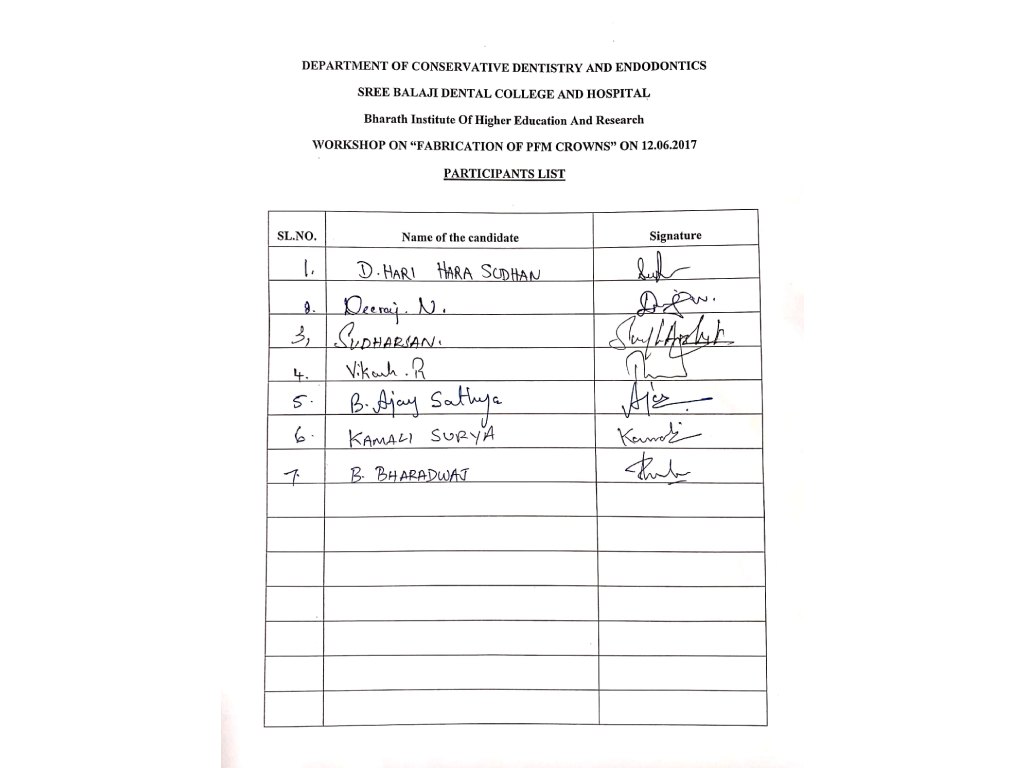 DEPARTMENT OF CONSERVATIVE DENTISTRY AND ENDODONTICS
SREE BALAJI DENTAL COLLEGE AND HOSPITAL
Bharath Institute Of Higher Education And Research
WORKSHOP ON “FABRICATION OF PFM CROWNS” ON 12.06.2017
PARTICIPANTS LIST
SL.NO. Name of the candidate Signature
1. D. HARI HARA SUDHAN
2. Deeraj. N.
3, SUDHARSAN.
4. Vikash . R
5. B. Ajay Sathya Ajay
6. KAMALI SURYA Kamali
7. B. BHARADWAJ